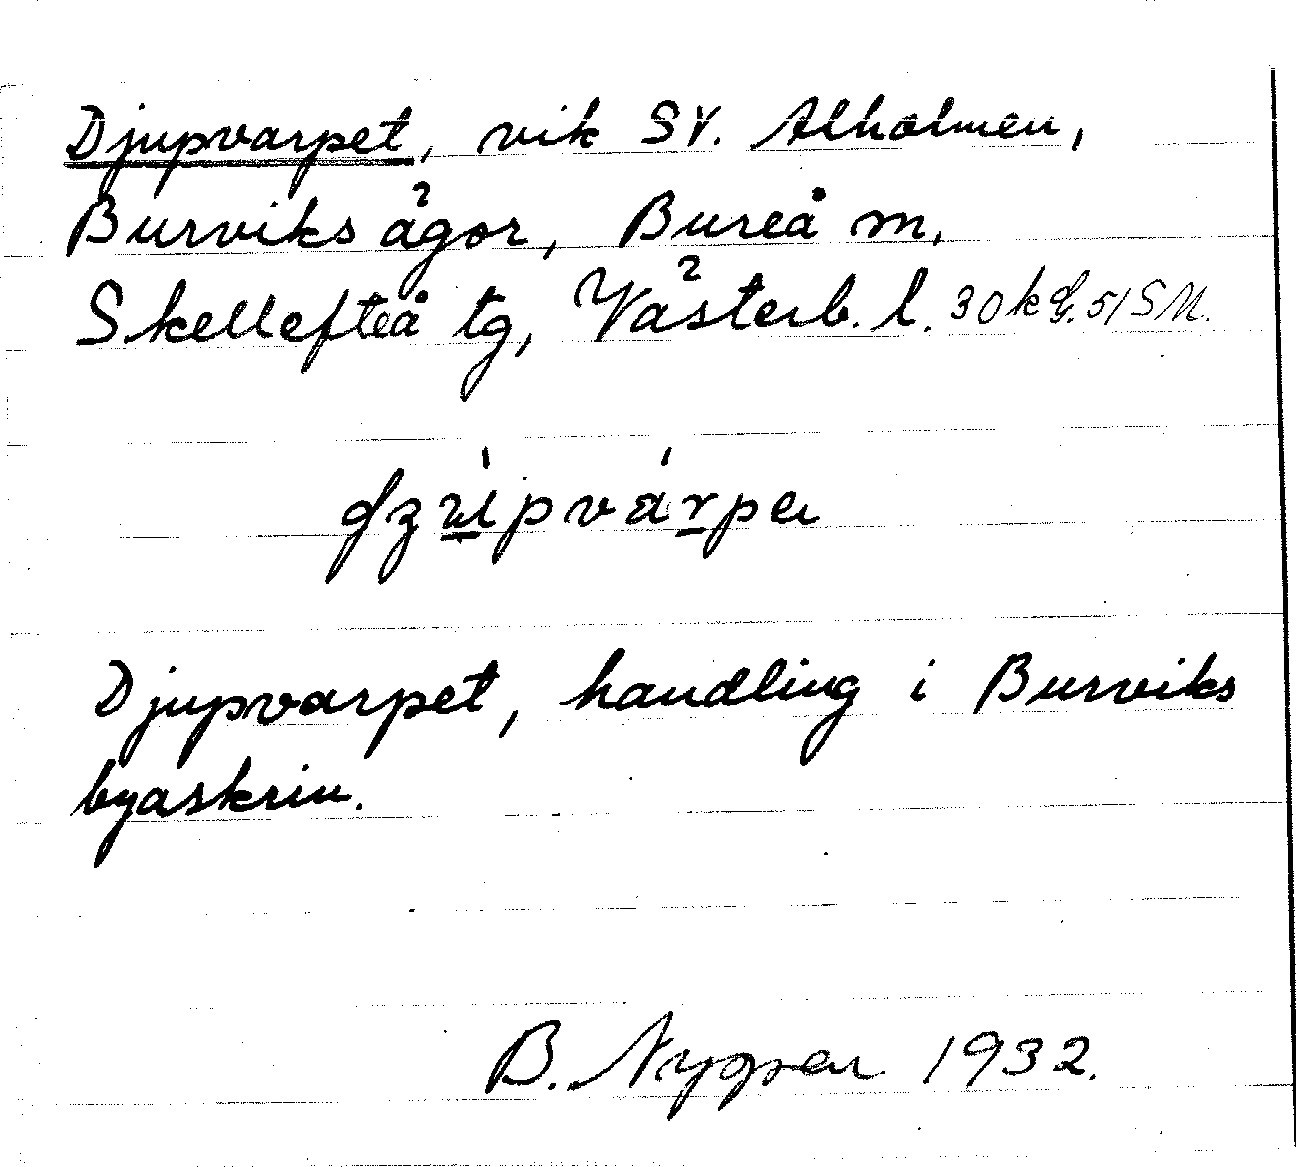 Djupvarpet, vik SV. Alholmen,
Burviks ägor, Bureå m,
Skellefteå tg, Västerb. l. 30 k
Djupvarpet, handling i Burviks
byaskrin.
B. Nygren 1932.